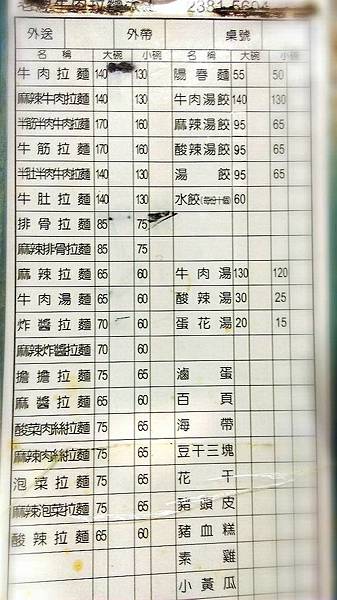 牛肉拉麵 2381-5604
外送 外帶 桌號
名稱 大碗 小碗 名稱 大碗 小碗
牛肉拉麵 140 130 陽春麵 55 50
麻辣牛肉拉麵 140 130 牛肉湯餃 140 130
半筋半肉牛肉拉麵 170 160 麻辣湯餃 95 65
牛筋拉麵 170 160 酸辣湯餃 95 65
半肚半肉牛肉拉麵 140 130 湯餃 95 65
牛肚拉麵 140 130 水餃(每份十個) 60
排骨拉麵 85 75
麻辣排骨拉麵 85 75
麻辣拉麵 65 60 牛肉湯 130 120
牛肉湯麵 65 60 酸辣湯 30 25
炸醬拉麵 70 60 蛋花湯 20 15
麻辣炸醬拉麵 70 60
擔擔拉麵 75 65 滷蛋
麻醬拉麵 75 65 百頁
酸菜肉絲拉麵 75 65 海帶
麻辣肉絲拉麵 75 65 豆干三塊
泡菜拉麵 75 65 花干
麻辣泡菜拉麵 75 65 豬頭皮
酸辣拉麵 65 60 豬血糕
素雞
小黃瓜